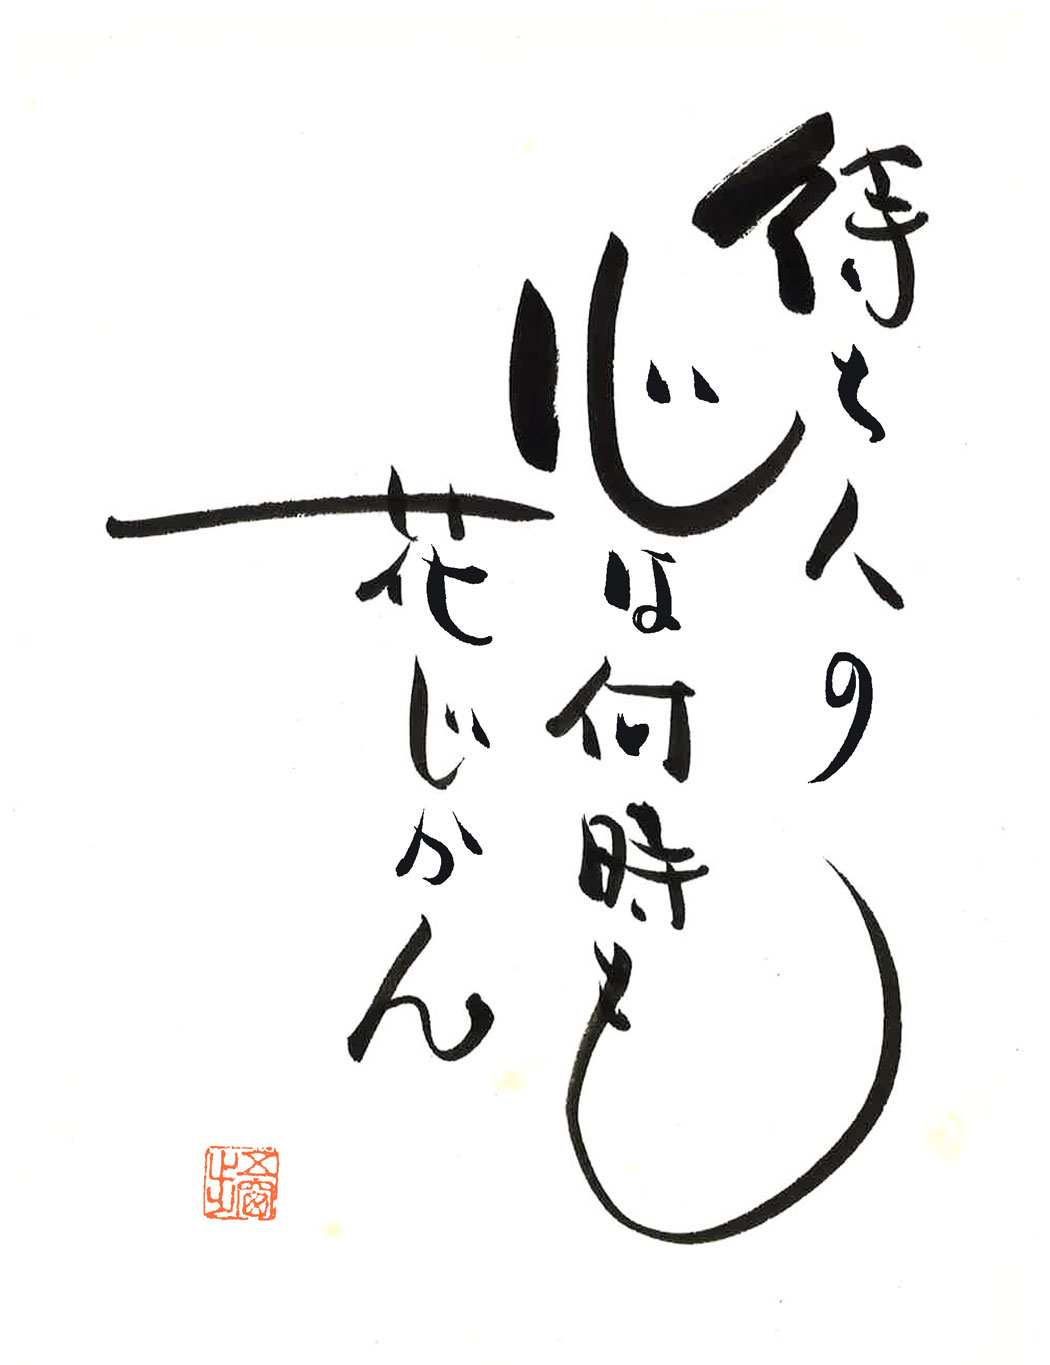 待ち人の
心は何時も
花じかん